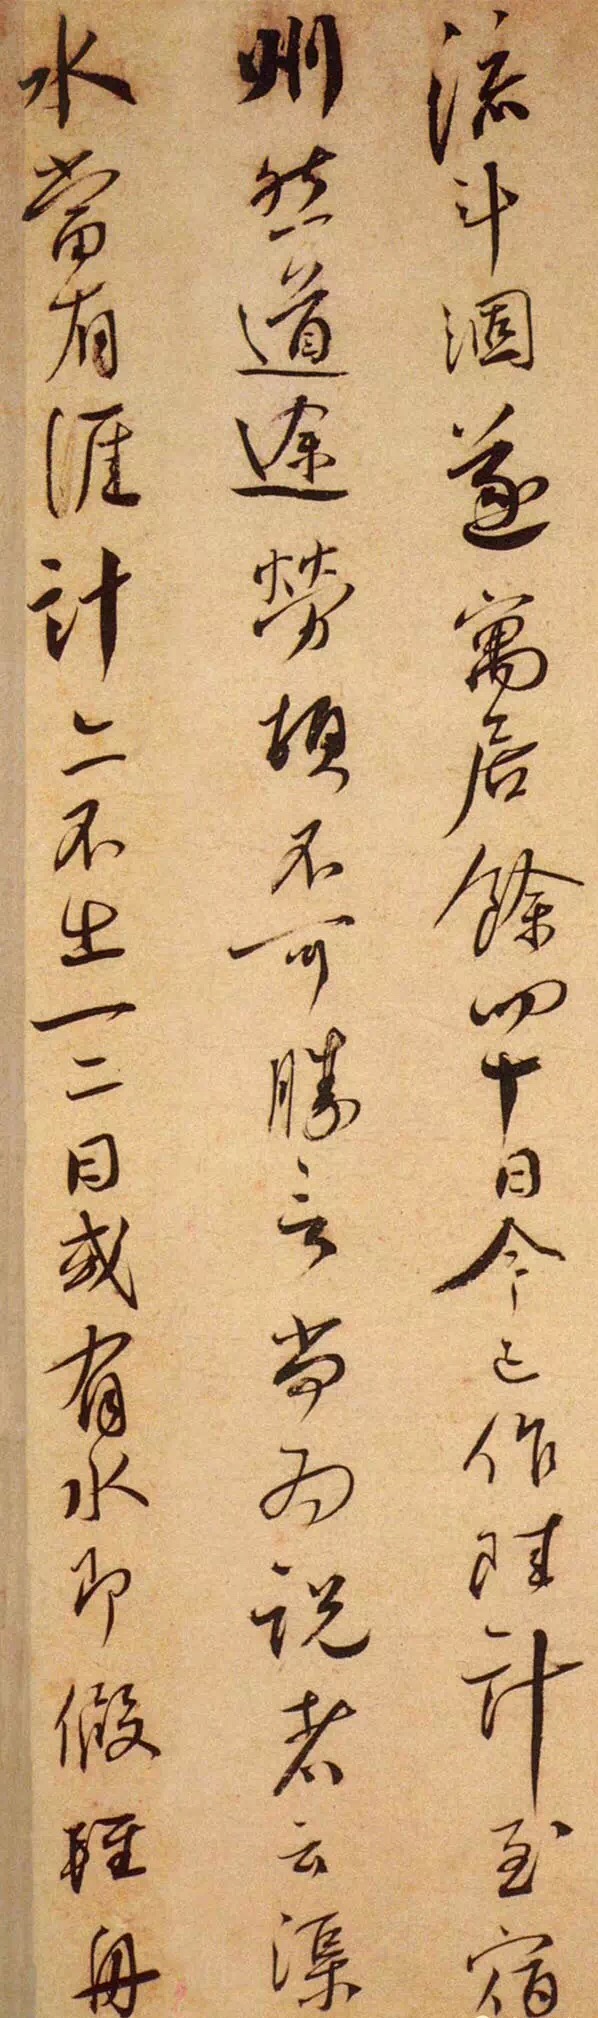 流斗涸遂寓居餘四十日今已作陸計至宿
州然道途勞頓不可勝言尚為説者云渠
水當有涯計亦不出一二日或有水即假輕舟